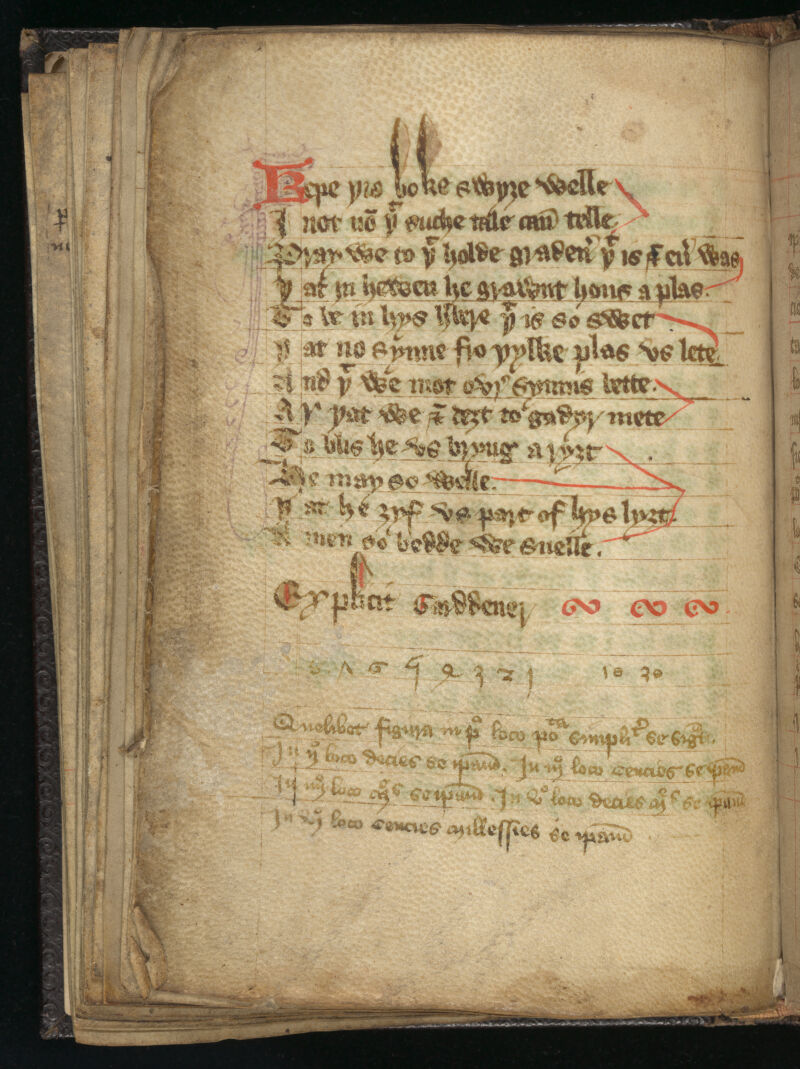 Kepe yis boke swyze welle
I not no yt suche tale can telle
Pray we to yt holde graden yt is & en was
yat in heven he gravnt hous a plas.
To be in hys yt is so swet
yat no synne fro yylke plas vs lete
And yt we mot ovr synnus bette.
Ar yat we & to gadyr mete
To blis he vs bryng aryzt
He may so welle.
yat he zyf vs part of hys lyzt.
Amen so bedde we snelle.
Explicit Garddener
8 ʌ 6 ϥ ꝝ 3 2 1 10 20
Quelibet figura in po loco poita simplr se sigt.
In ijo loco decies se ipam. In iijo loco cencies se ipam
In iiijo loco se ipam. In vo loco decies se ipam
In vjo loco cencies millessies se ipam